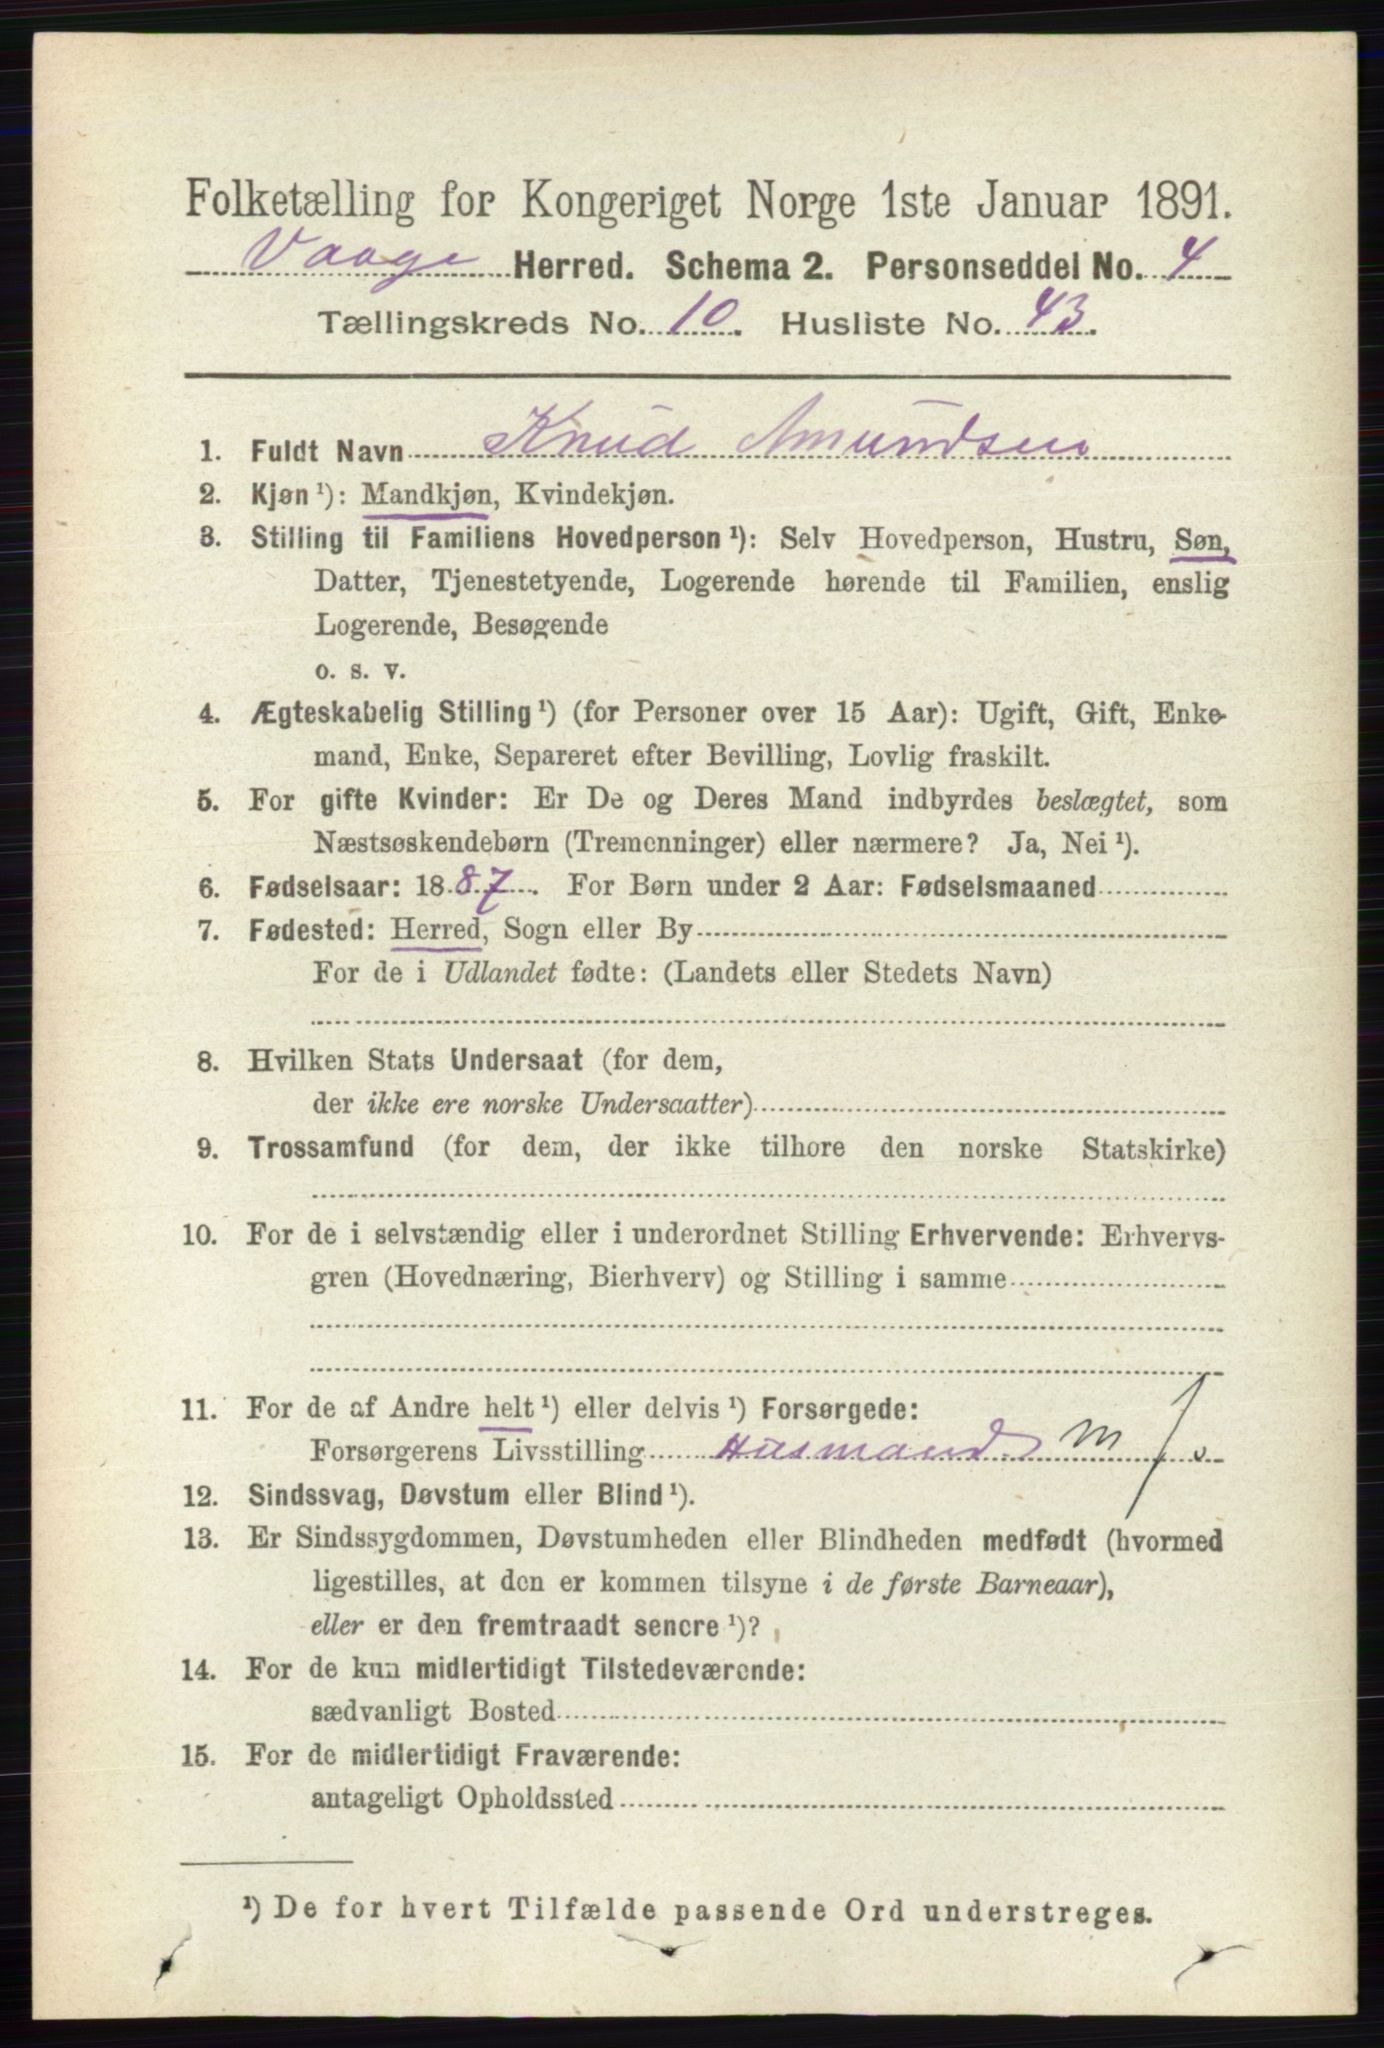 Folketælling for Kongeriget Norge 1ste Januar 1891.
Vaage Herred. Schema 2. Personseddel No. 4
Tællingskreds No. 10. Husliste No. 43.
1. Fuldt Navn Knud Amundsen
2. Kjøn ¹): Mandkjøn, Kvindekjøn.
3. Stilling til Familiens Hovedperson ¹): Selv Hovedperson, Hustru, Søn,
Datter, Tjenestetyende, Logerende hørende til Familien, enslig
Logerende, Besøgende
o. s. v.
4. Ægteskabelig Stilling ¹) (for Personer over 15 Aar): Ugift, Gift, Enke-
mand, Enke, Separeret efter Bevilling, Lovlig fraskilt.
5. For gifte Kvinder: Er De og Deres Mand indbyrdes beslægtet, som
Næstsøskendebørn (Tremenninger) eller nærmere? Ja, Nei ¹).
6. Fødselsaar: 1887. For Børn under 2 Aar: Fødselsmaaned
7. Fødested: Herred, Sogn eller By
For de i Udlandet fødte: (Landets eller Stedets Navn)
8. Hvilken Stats Undersaat (for dem,
der ikke ere norske Undersaatter)
9. Trossamfund (for dem, der ikke tilhore den norske Statskirke)
10. For de i selvstændig eller i underordnet Stilling Erhvervende: Erhvervs-
gren (Hovednæring, Bierhverv) og Stilling i samme
11. For de af Andre helt ¹) eller delvis ¹) Forsørgede:
Forsørgerens Livsstilling Husmand m/J
12. Sindssvag, Døvstum eller Blind ¹).
13. Er Sindssygdommen, Døvstumheden eller Blindheden medfødt (hvormed
ligestilles, at den er kommen tilsyne i de første Barneaar),
eller er den fremtraadt senere ¹)?
14. For de kun midlertidigt Tilstedeværende:
sædvanligt Bosted
15. For de midlertidigt Fraværende:
antageligt Opholdssted
¹) De for hvert Tilfælde passende Ord understreges.